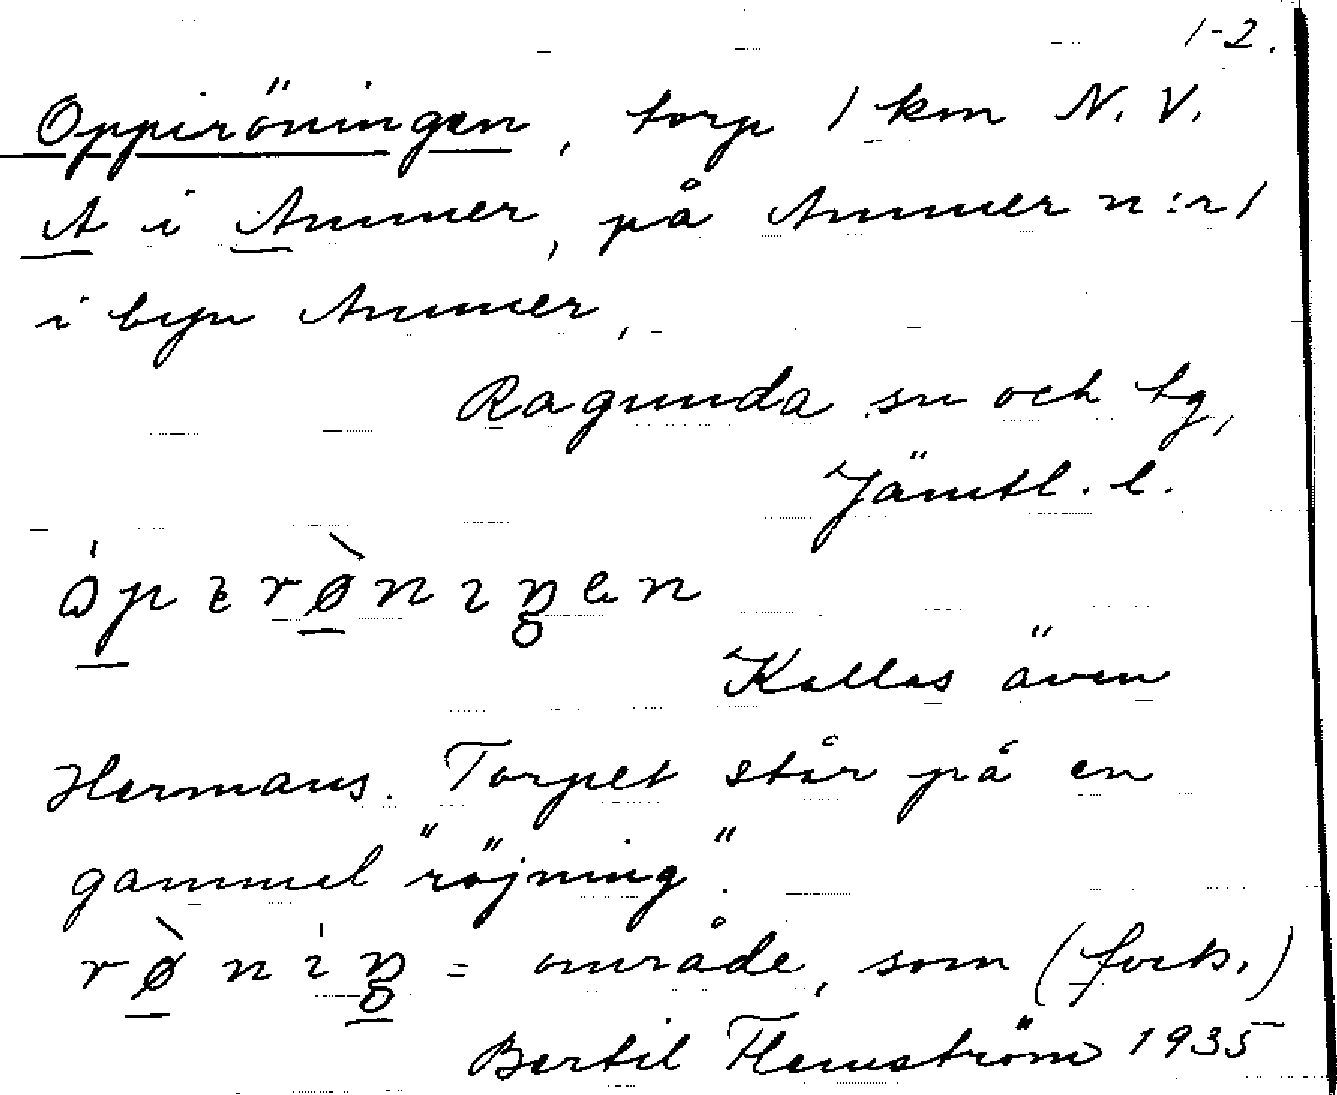 1-2.
Oppiröningen, torp 1 km N.V.
A i Ammer, på Ammer n:r 1
i byn Ammer,
Ragunda sn och tg,
Jämtl. l.
Kallas även
Hermans. Torpet står på en
gammal "röjning".
= område, som (forts.)
Bertil Flemström 1935